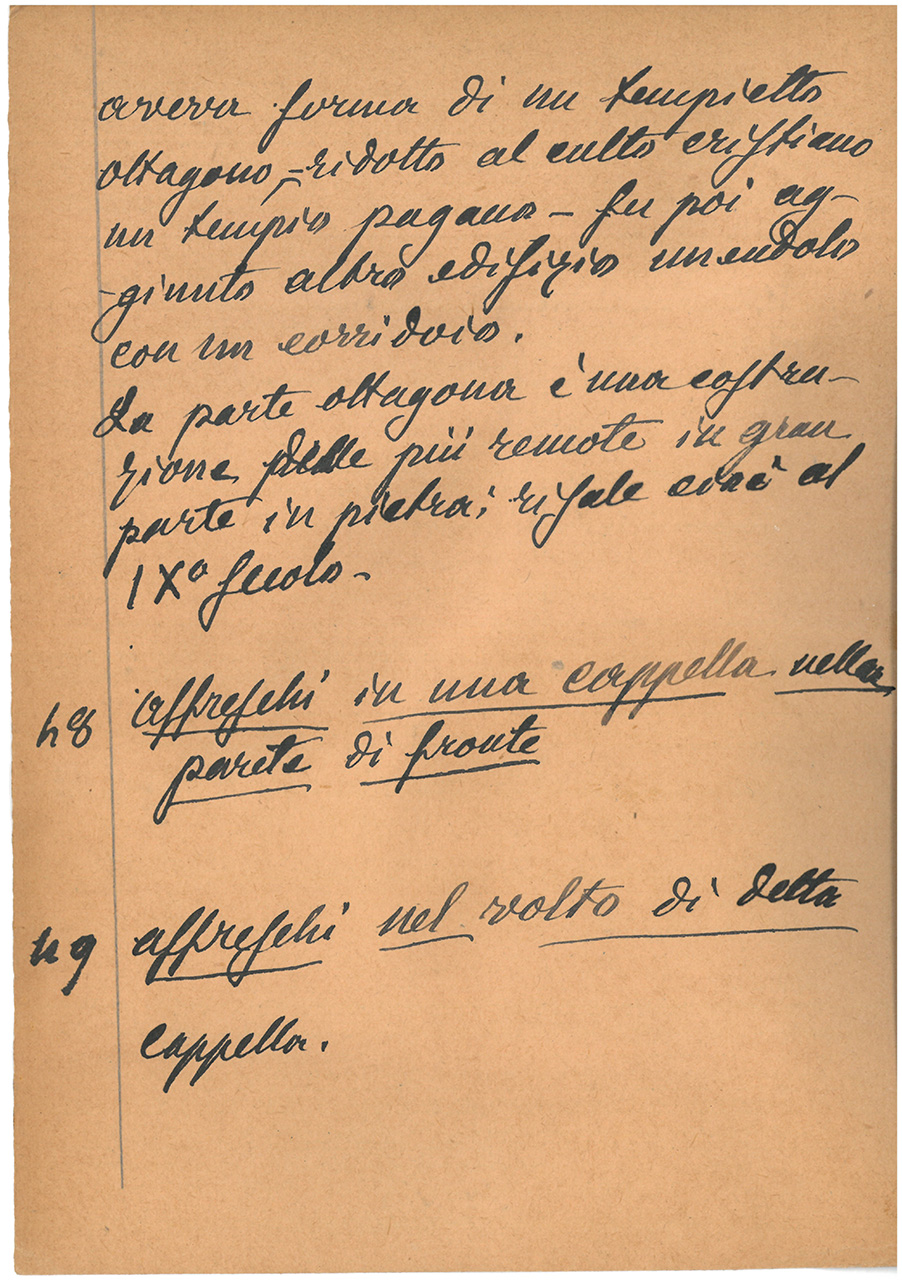 aveva forma di un tempietto
ottagono, - ridotto al culto cristiano
un tempio pagano - fu poi ag-
-giunto altro edifizio unendolo
con un corridoio.
La parte ottagona è una costru-
zione delle più remote in gran
parte in pietra; risale cioè al
IXº secolo -
n 8 affreschi in una cappella nella
parete di fronte
n 9 affreschi nel volto di detta
cappella.